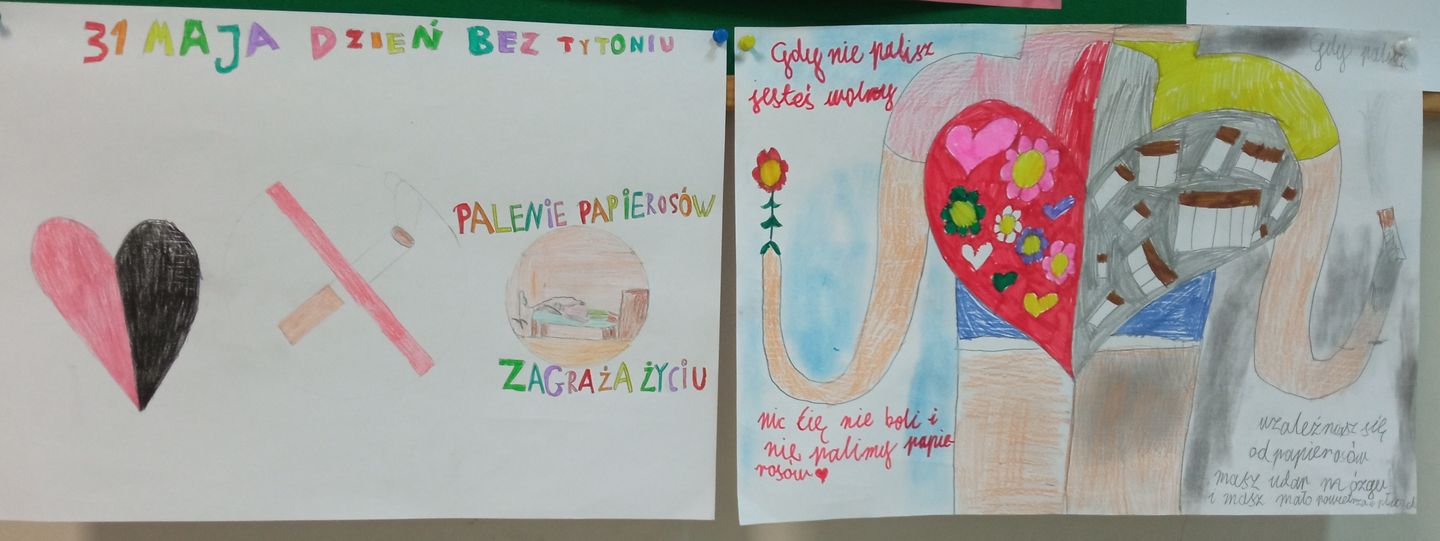 31 MAJA DZIEŃ BEZ TYTONIU
PALENIE PAPIEROSÓW
ZAGRAŻA ŻYCIU
Gdy nie palisz
jesteś wolny
nic Cię nie boli i
nie palimy papie-
rosów
Gdy palisz
uzależniasz się
od papierosów
masz udar mózgu
i masz mało powietrza